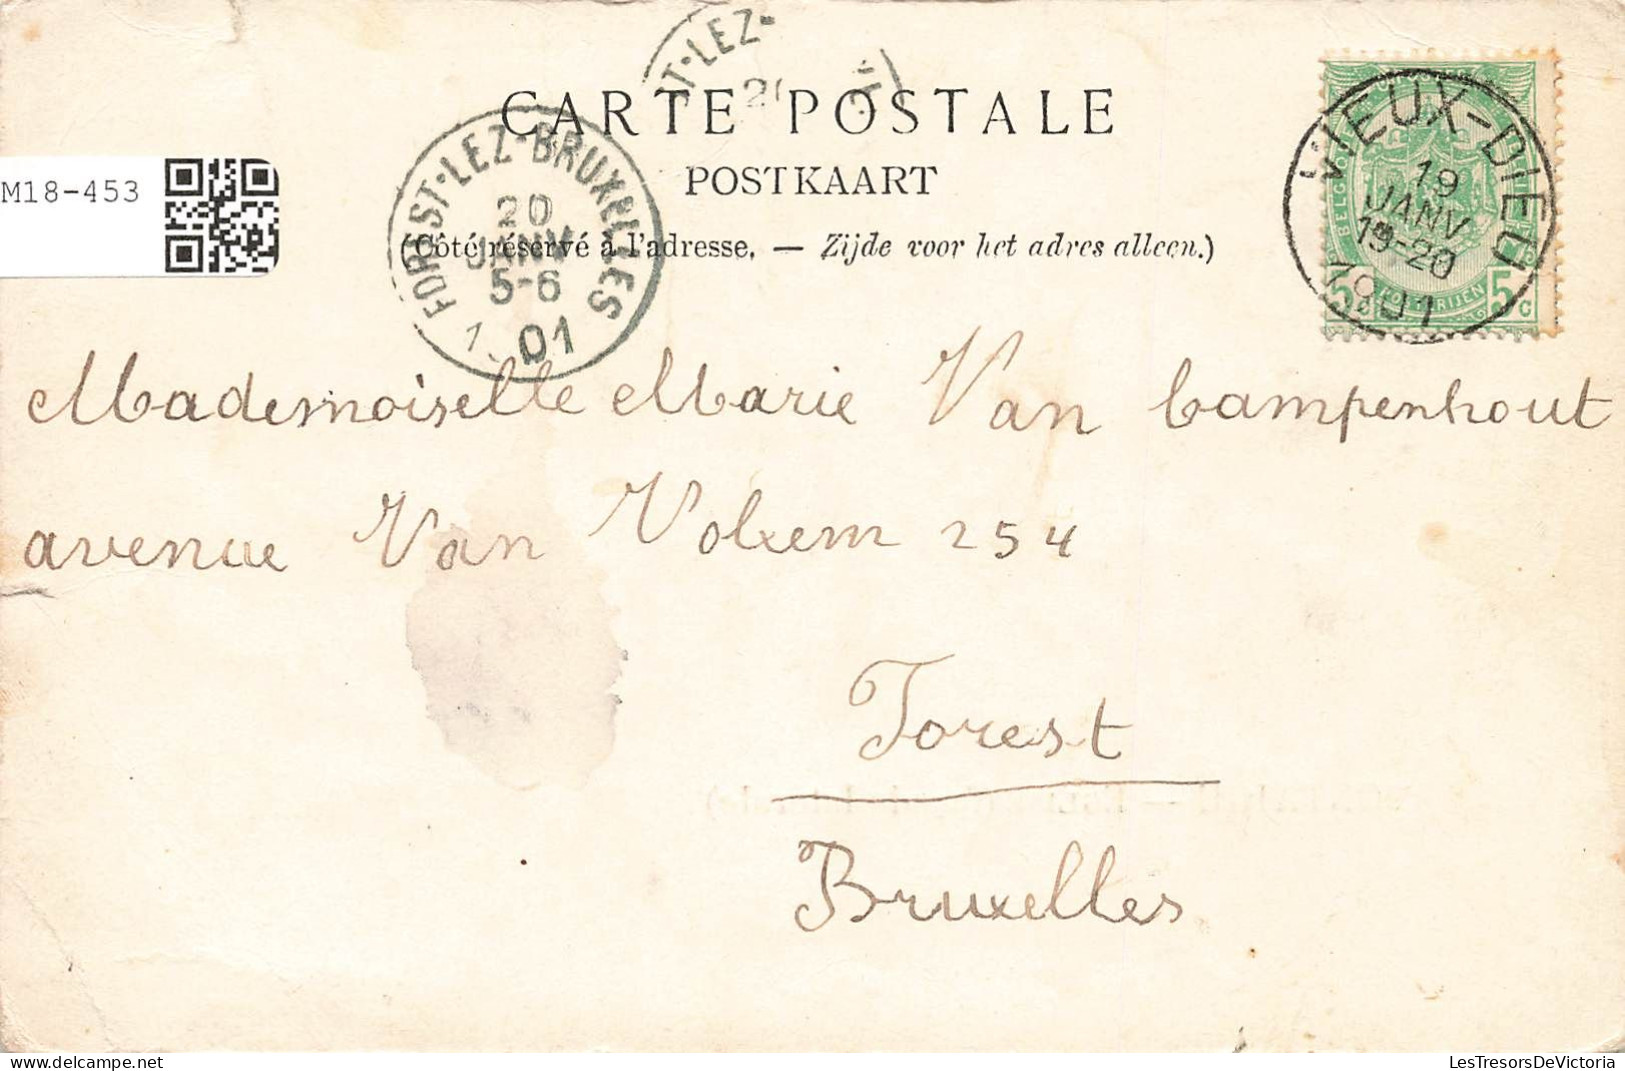 ST·LEZ-
CARTE POSTALE
POSTKAART
(Côté réservé à l'adresse. — Zijde voor het adres alleen.)
M18-453
FOREST-LEZ-BRUXELLES
20
JANV
5-6
1
01
VIEUX-DIEU
19
JANV
19-20
1901
5c POSTERIJEN 5c
Mademoiselle Marie Van Campenhout
avenue Van Volxem 254
Forest
Bruxelles
LesTresorsDeVictoria